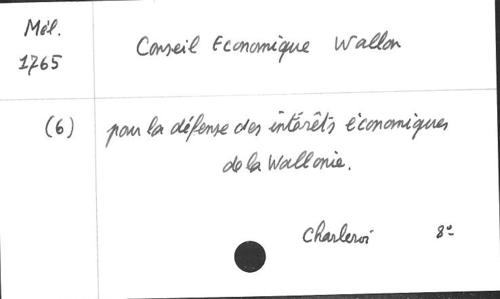 Mél.
1765
Conseil Economique Wallon
(6)
pour la défense des intérêts économiques
de la Wallonie.
Charleroi 8º